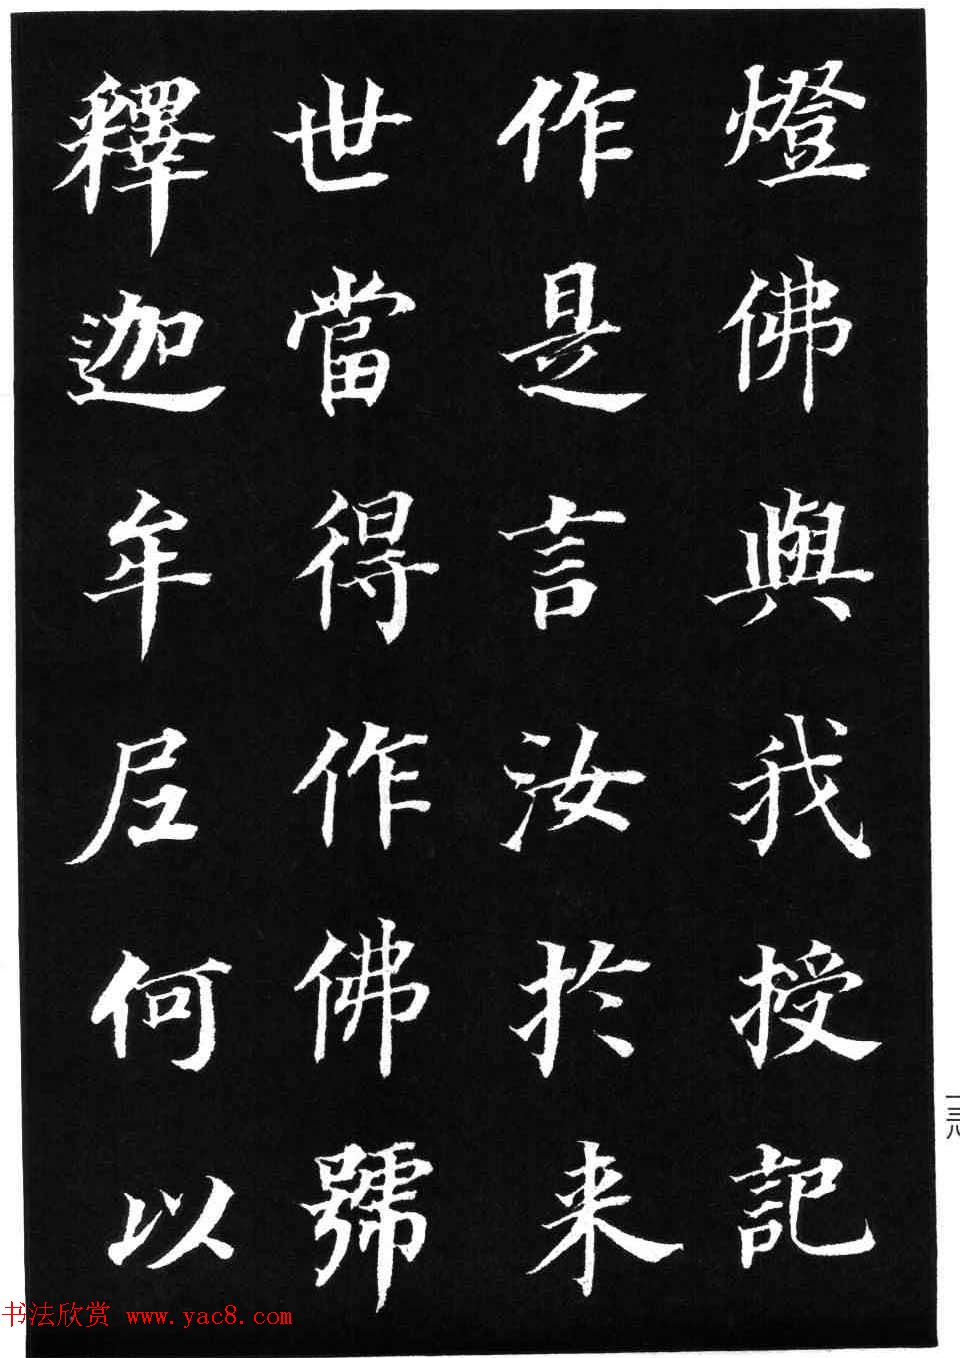 燈佛與我授記
作是言汝於来
世當得作佛號
釋迦牟尼何以
一三八
书法欣赏 www.yac8.com